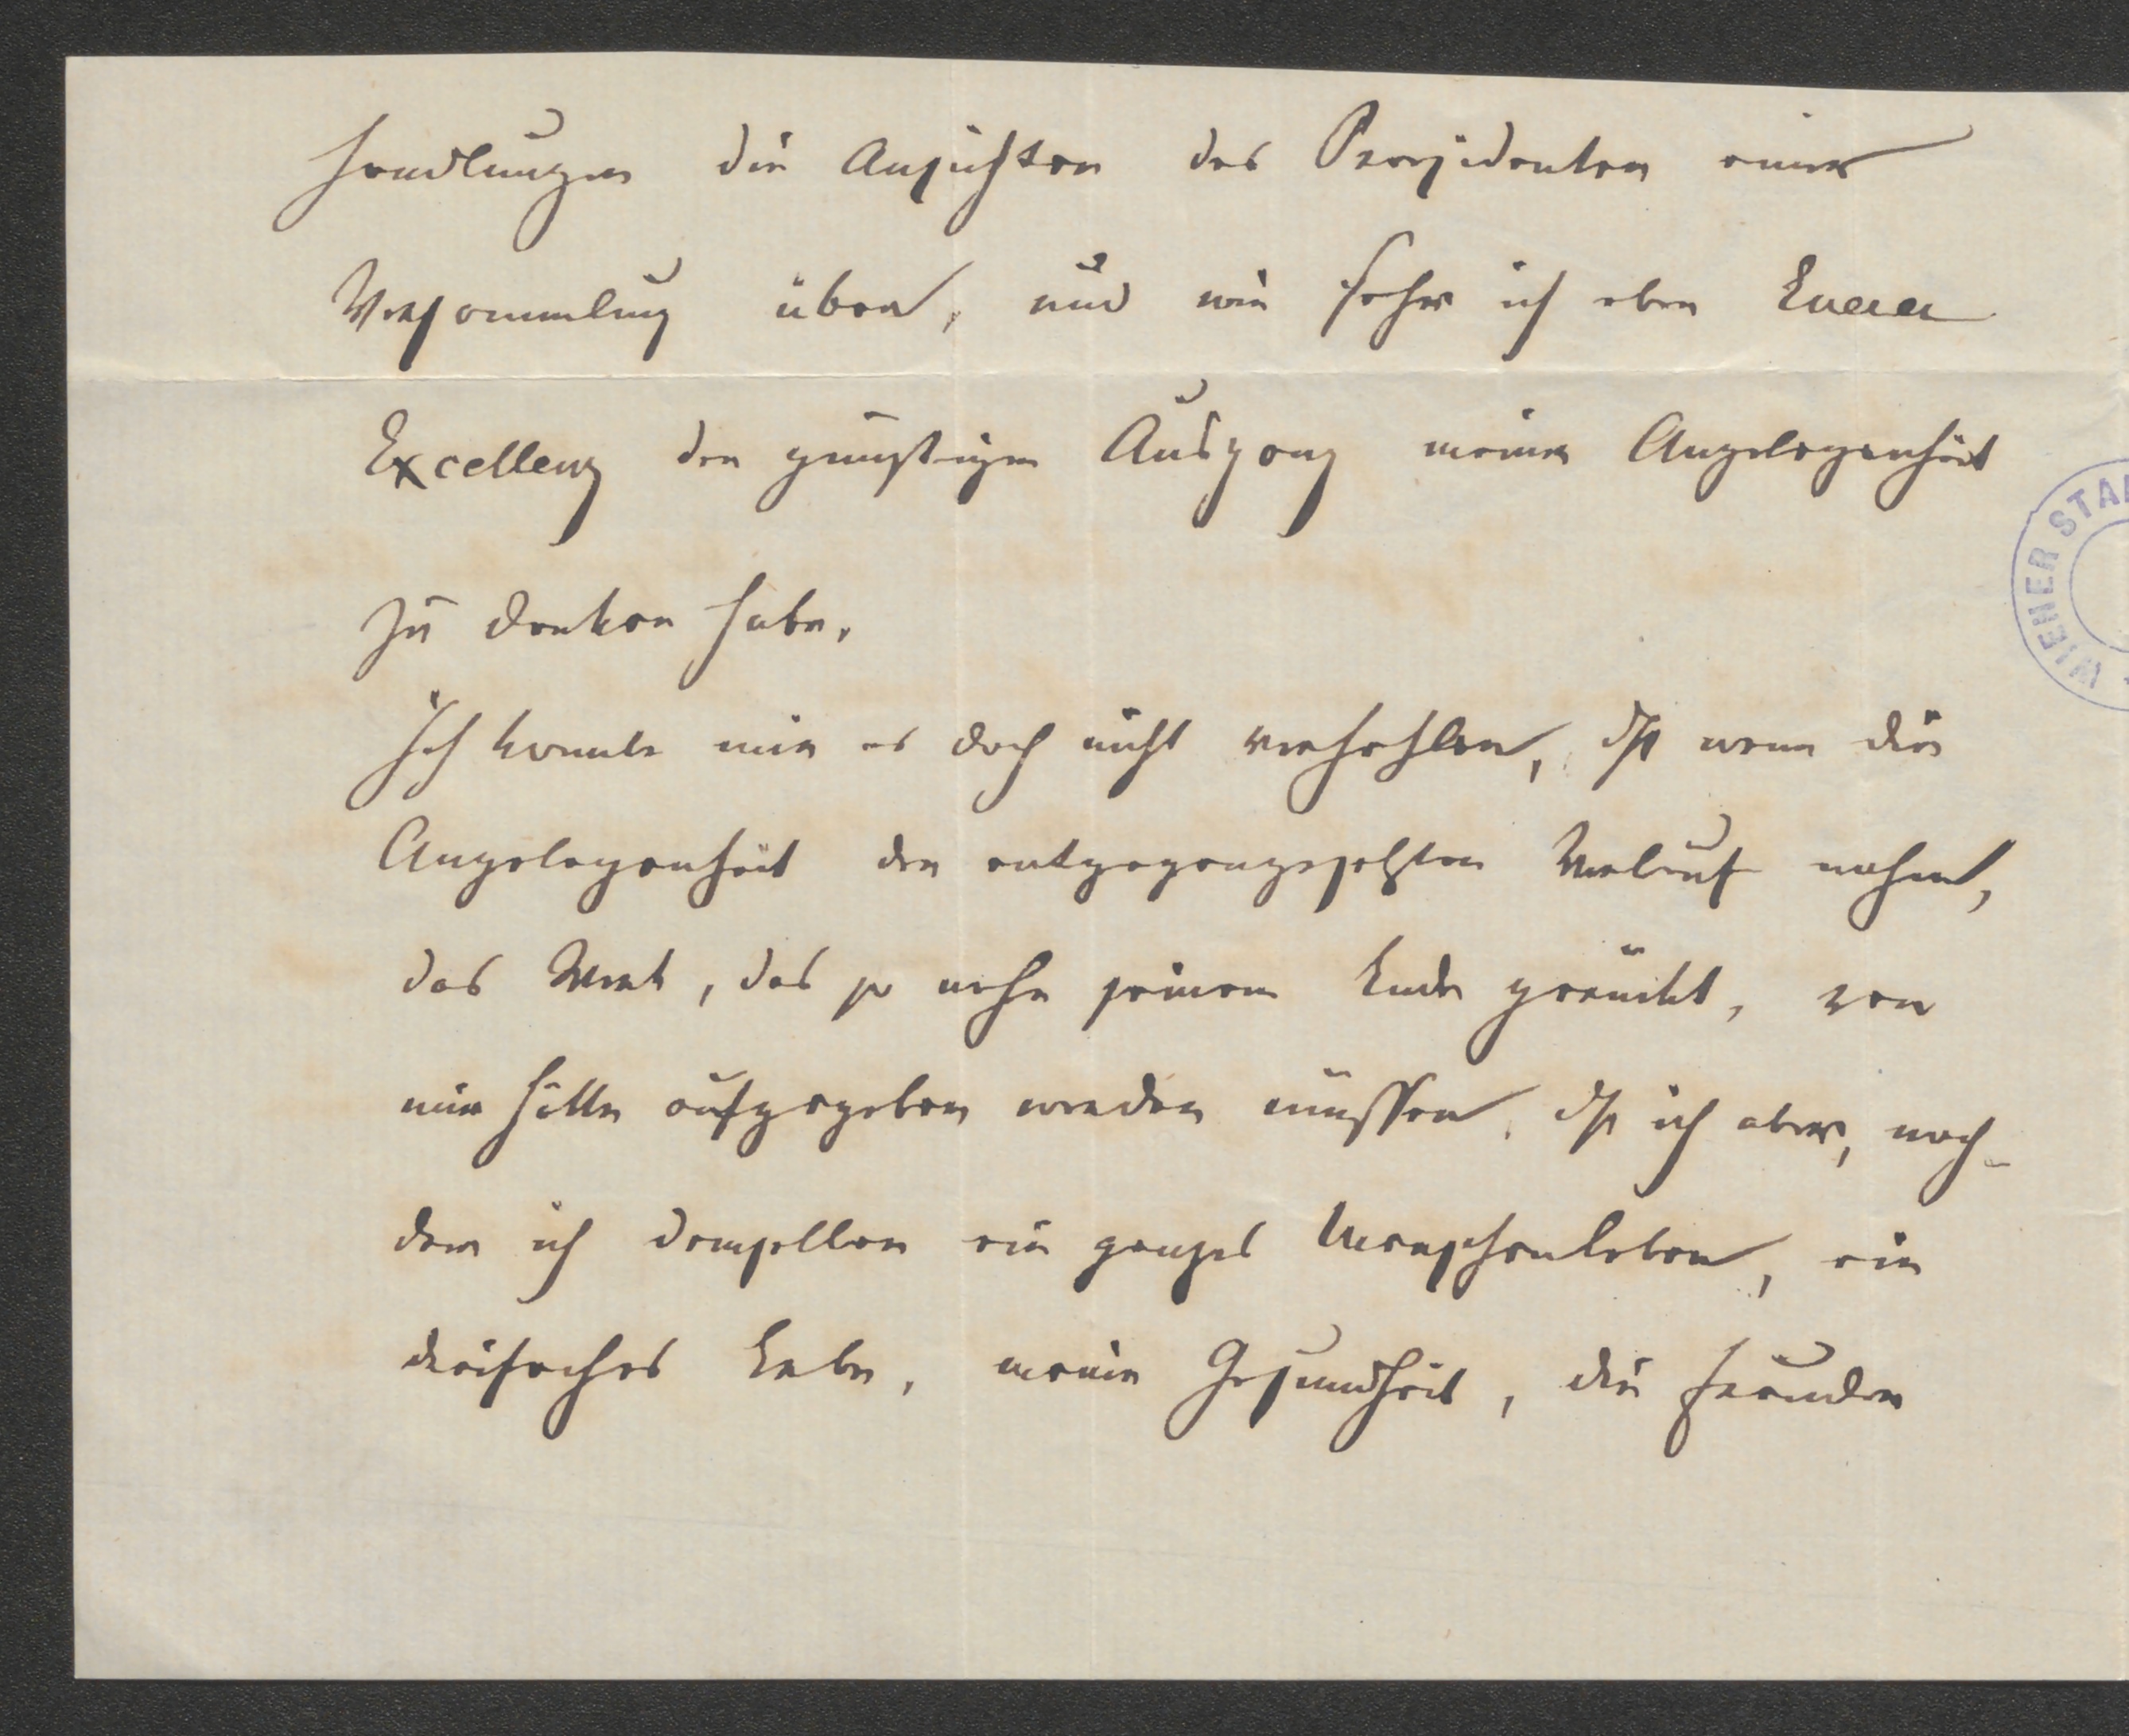 handlungen die Ansichten des Praesidenten einer
Versammlung üben, und wie sehr ich eben Euerer
Excellenz den günstigen Ausgang meiner Angelegenheit
zu danken habe.
Ich konnte mir es doch nicht verhehlen, dß wenn die
Angelegenheit den entgegengesetzten Verlauf nahm,
das Werk, das so nahe seinem Ende gerückt, von
mir hätte aufgegeben werden müssen, dß ich aber, nach-
dem ich demselben ein ganzes Menschenleben, ein
dreifaches Erbe, meine Gesundheit, die Freuden
WIENER STA